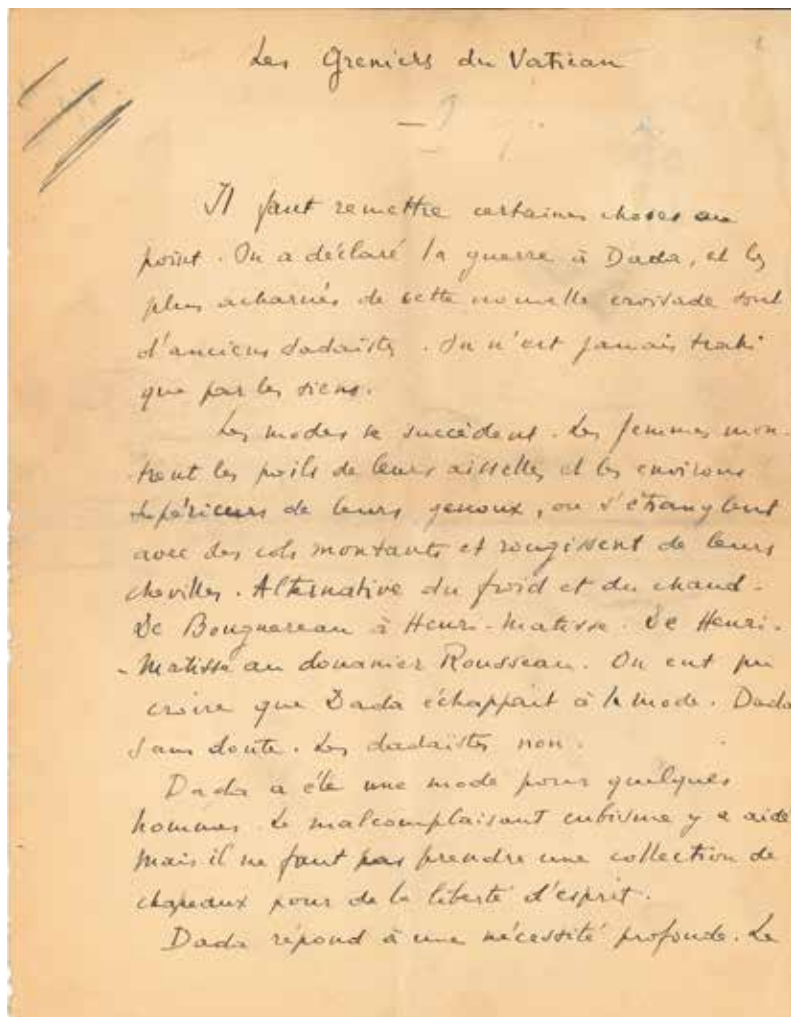 Les Greniers du Vatican
Il faut remettre certaines choses au
point. On a déclaré la guerre à Dada, et les
plus acharnés de cette nouvelle croisade sont
d'anciens dadaïstes. On n'est jamais trahi
que par les siens.
Les modes se succèdent. Les femmes mon-
trent les poils de leurs aisselles et les environs
supérieurs de leurs genoux, ou s'étranglent
avec des cols montants et rougissent de leurs
chevilles. Alternative du froid et du chaud-
De Bouguereau à Henri-Matisse. De Henri-
-Matisse au douanier Rousseau. On eut pu
croire que Dada échappait à la mode. Dada
sans doute. Les dadaïstes non.
Dada a été une mode pour quelques
hommes. Le malcomplaisant cubisme y a aidé
Mais il ne faut pas prendre une collection de
chapeaux pour de la liberté d'esprit.
Dada répond à une nécessité profonde. Le